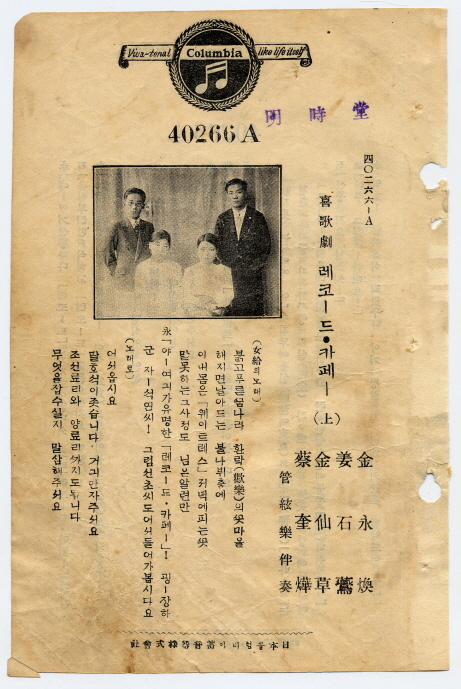 Viva-tonal Columbia like life itself
明時堂
40266A
四〇二六六—A
喜歌劇 레코—드•카페— (上)
金永煥
姜石鷰
金仙草
蔡奎燁
管絃樂伴奏
(女給의노래)
붉고푸른쌤나라 환락(歡樂)의꼿마을
해지면날아드는 불나뷔춤에
이내몸은「웨이트레스」커벽에피는꼿
말못하는그사정도 님은알련만
永「야— 여긔가유명한「레코—드•카페—」! 굉—장하
군 자—석연씨! 그럼선초씨도어서들어가봅시다요
(노래로)
어서옵시요
말호석이좃습니다. 거긔안자주서요
조선료리와 양료리까지도됩니다
무엇을잡수실지 말삼해주서요
日本콜럼비아蓄音器株式會社